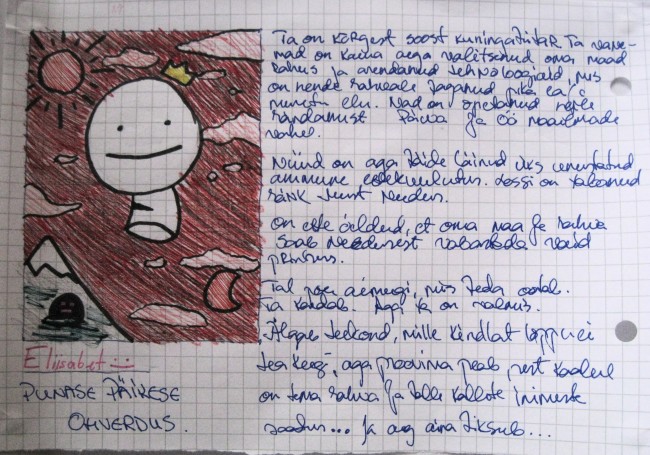 Ta on kõrgest soost kuningatütar. Ta vane-
mad on kaua aega valitsenud oma maad
rahus ja arendanud tehnoloogiaid, mis
on nende rahvale taganud pika ea ja
elu. Nad on õpetanud neile
rändamist Päeva ja Öö maailmade
vahel.
Nüüd on aga täide läinud üks unustatud
ammune ettekuulutus. Lossi on tabanud
ränk needus.
On ette öeldud, et oma maa ja rahva
saab needusest vabastada vaid
printsess.
Tal pole aimugi, mis teda ootab.
Ta kardab. Aga ta on valmis.
Algas teekond, mille kindlat lõppu ei
tea keegi, aga proovima peab, sest kaalul
on tema rahva ja talle kallite inimeste
saatus... Ja aeg aina tiksub...
Eliisabet
PUNASE PÄIKESE
OHVERDUS.